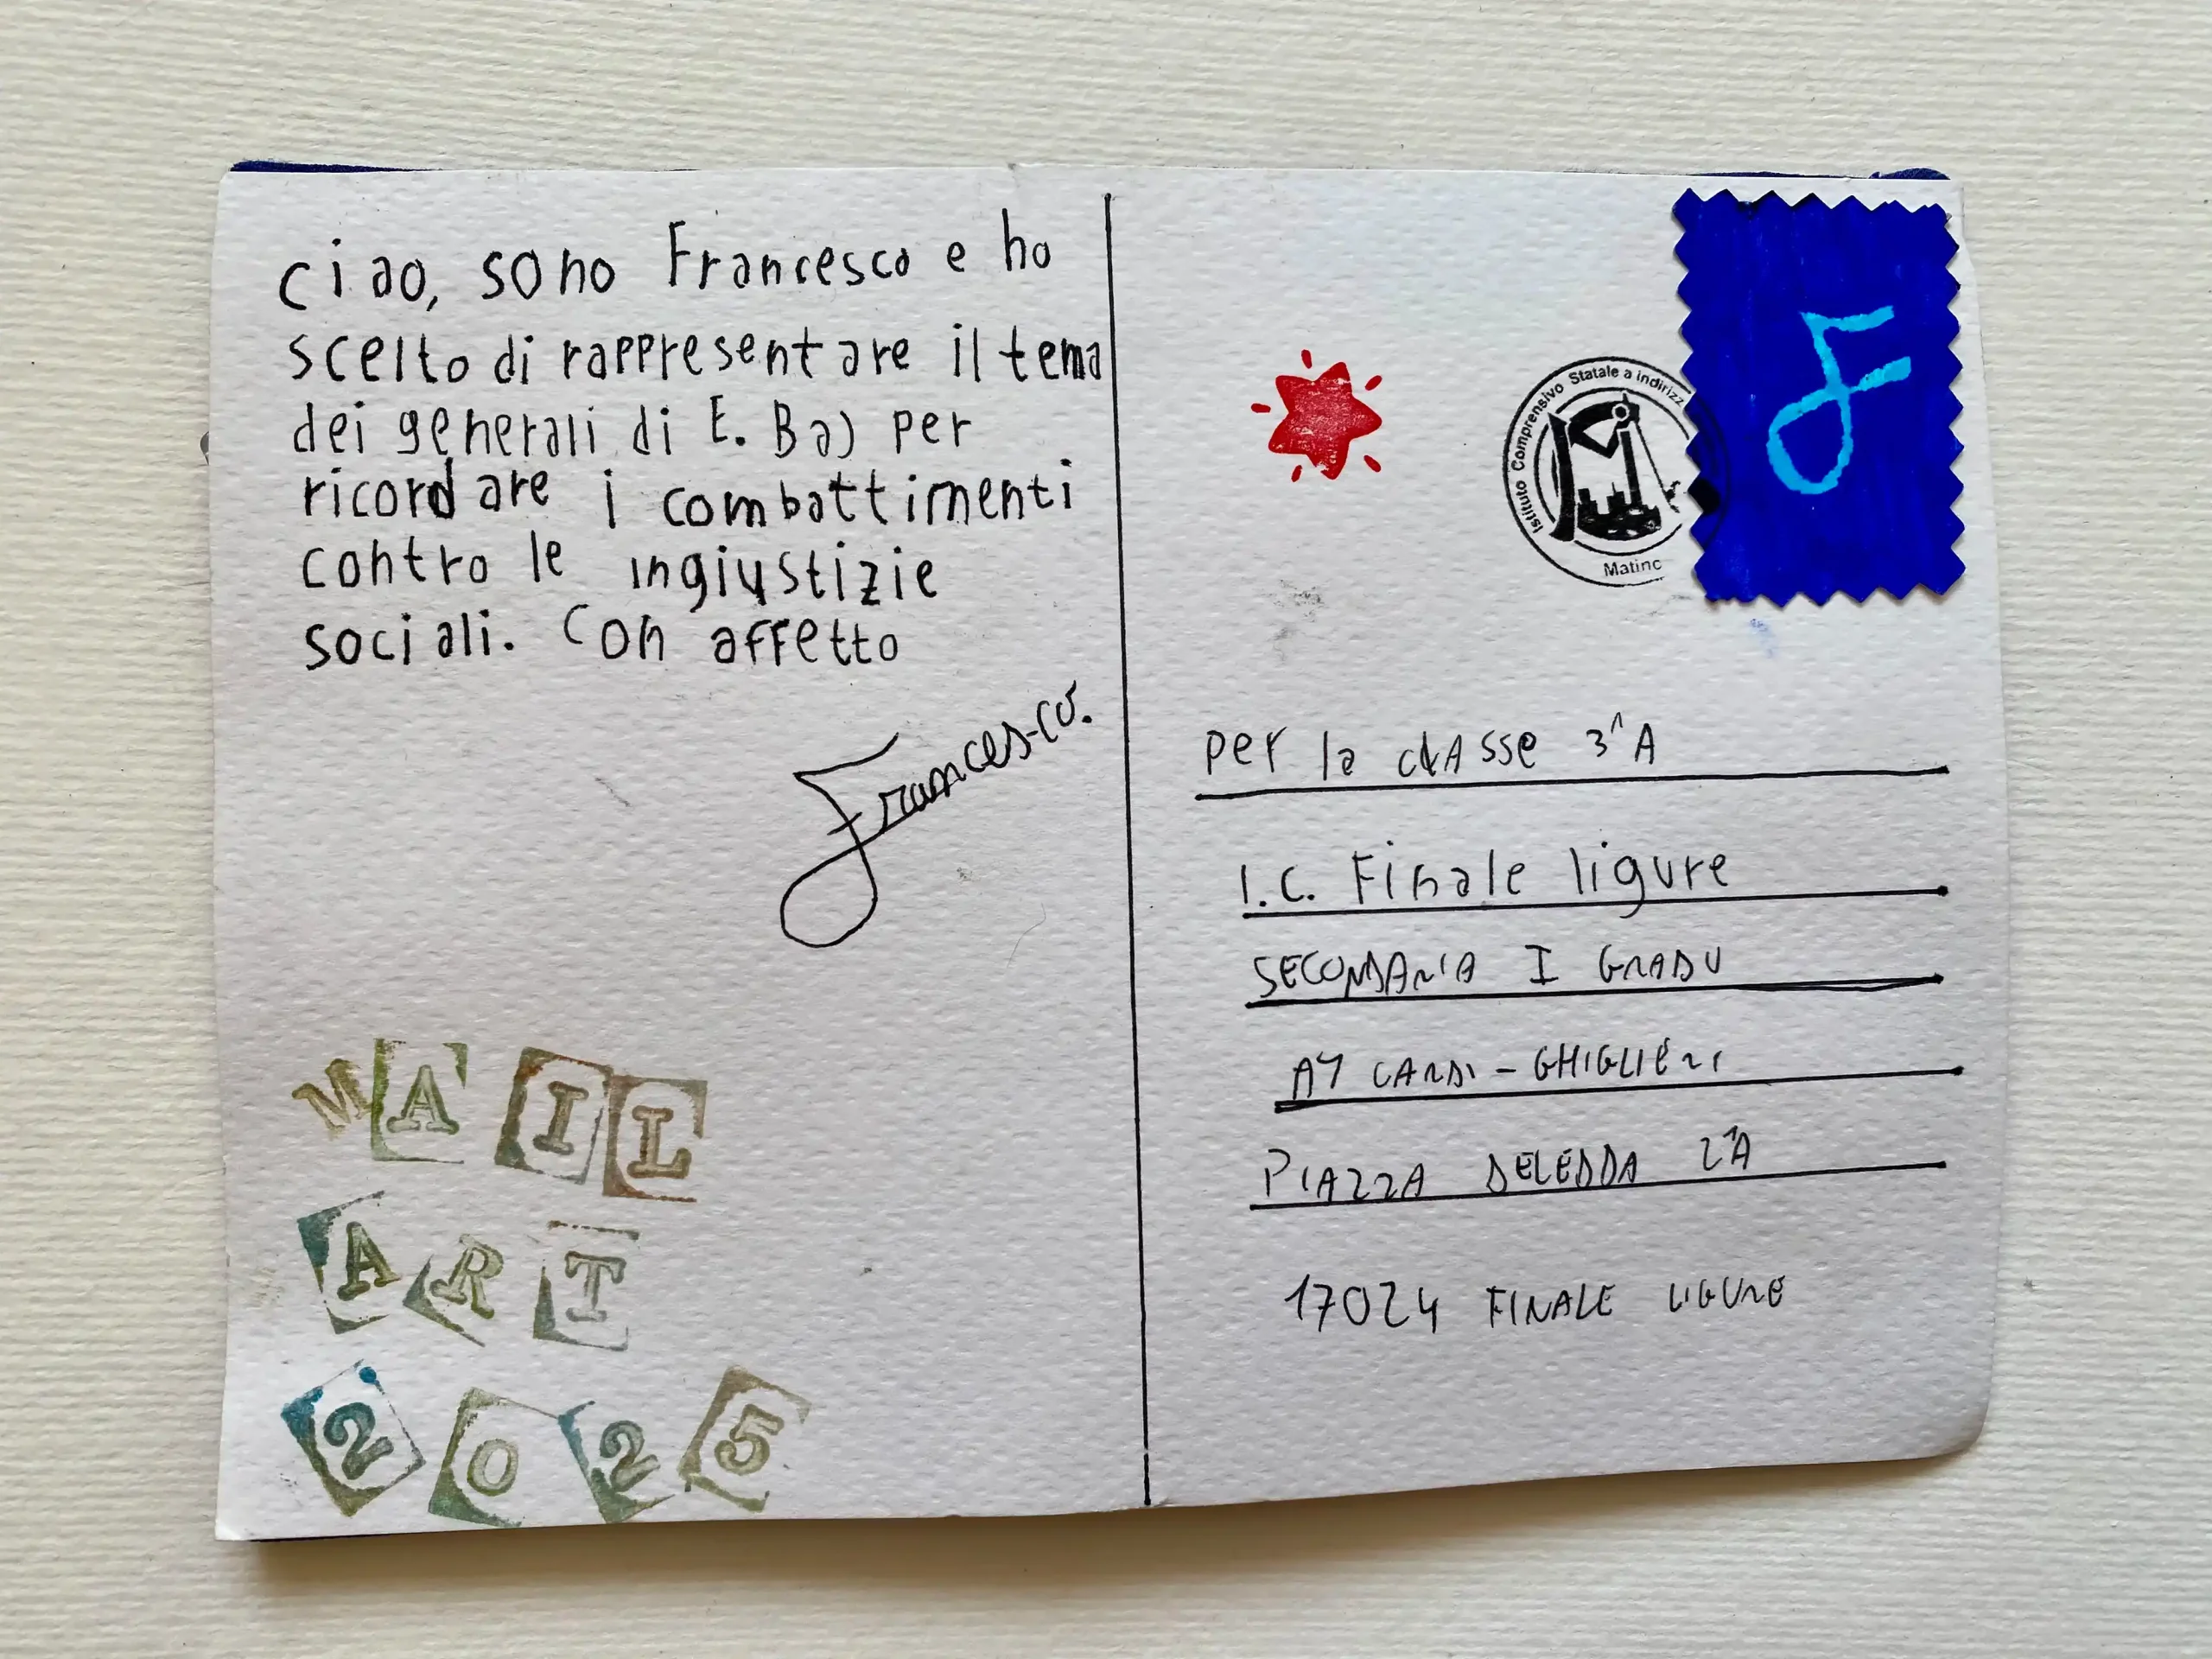 ciao, sono Francesco e ho
scelto di rappresentare il tema
dei generali di E. Baj per
ricordare i combattimenti
contro le ingiustizie
sociali. Con affetto
Francesco.
MAIL
ART
2025
Istituto Comprensivo Statale a indirizz
Matino
F
per la classe 3^A
I.C. Finale ligure
SECONDARIA I GRADO
CARDI - GHIGLIERI
PIAZZA DELEDDA
17024 FINALE LIGURE